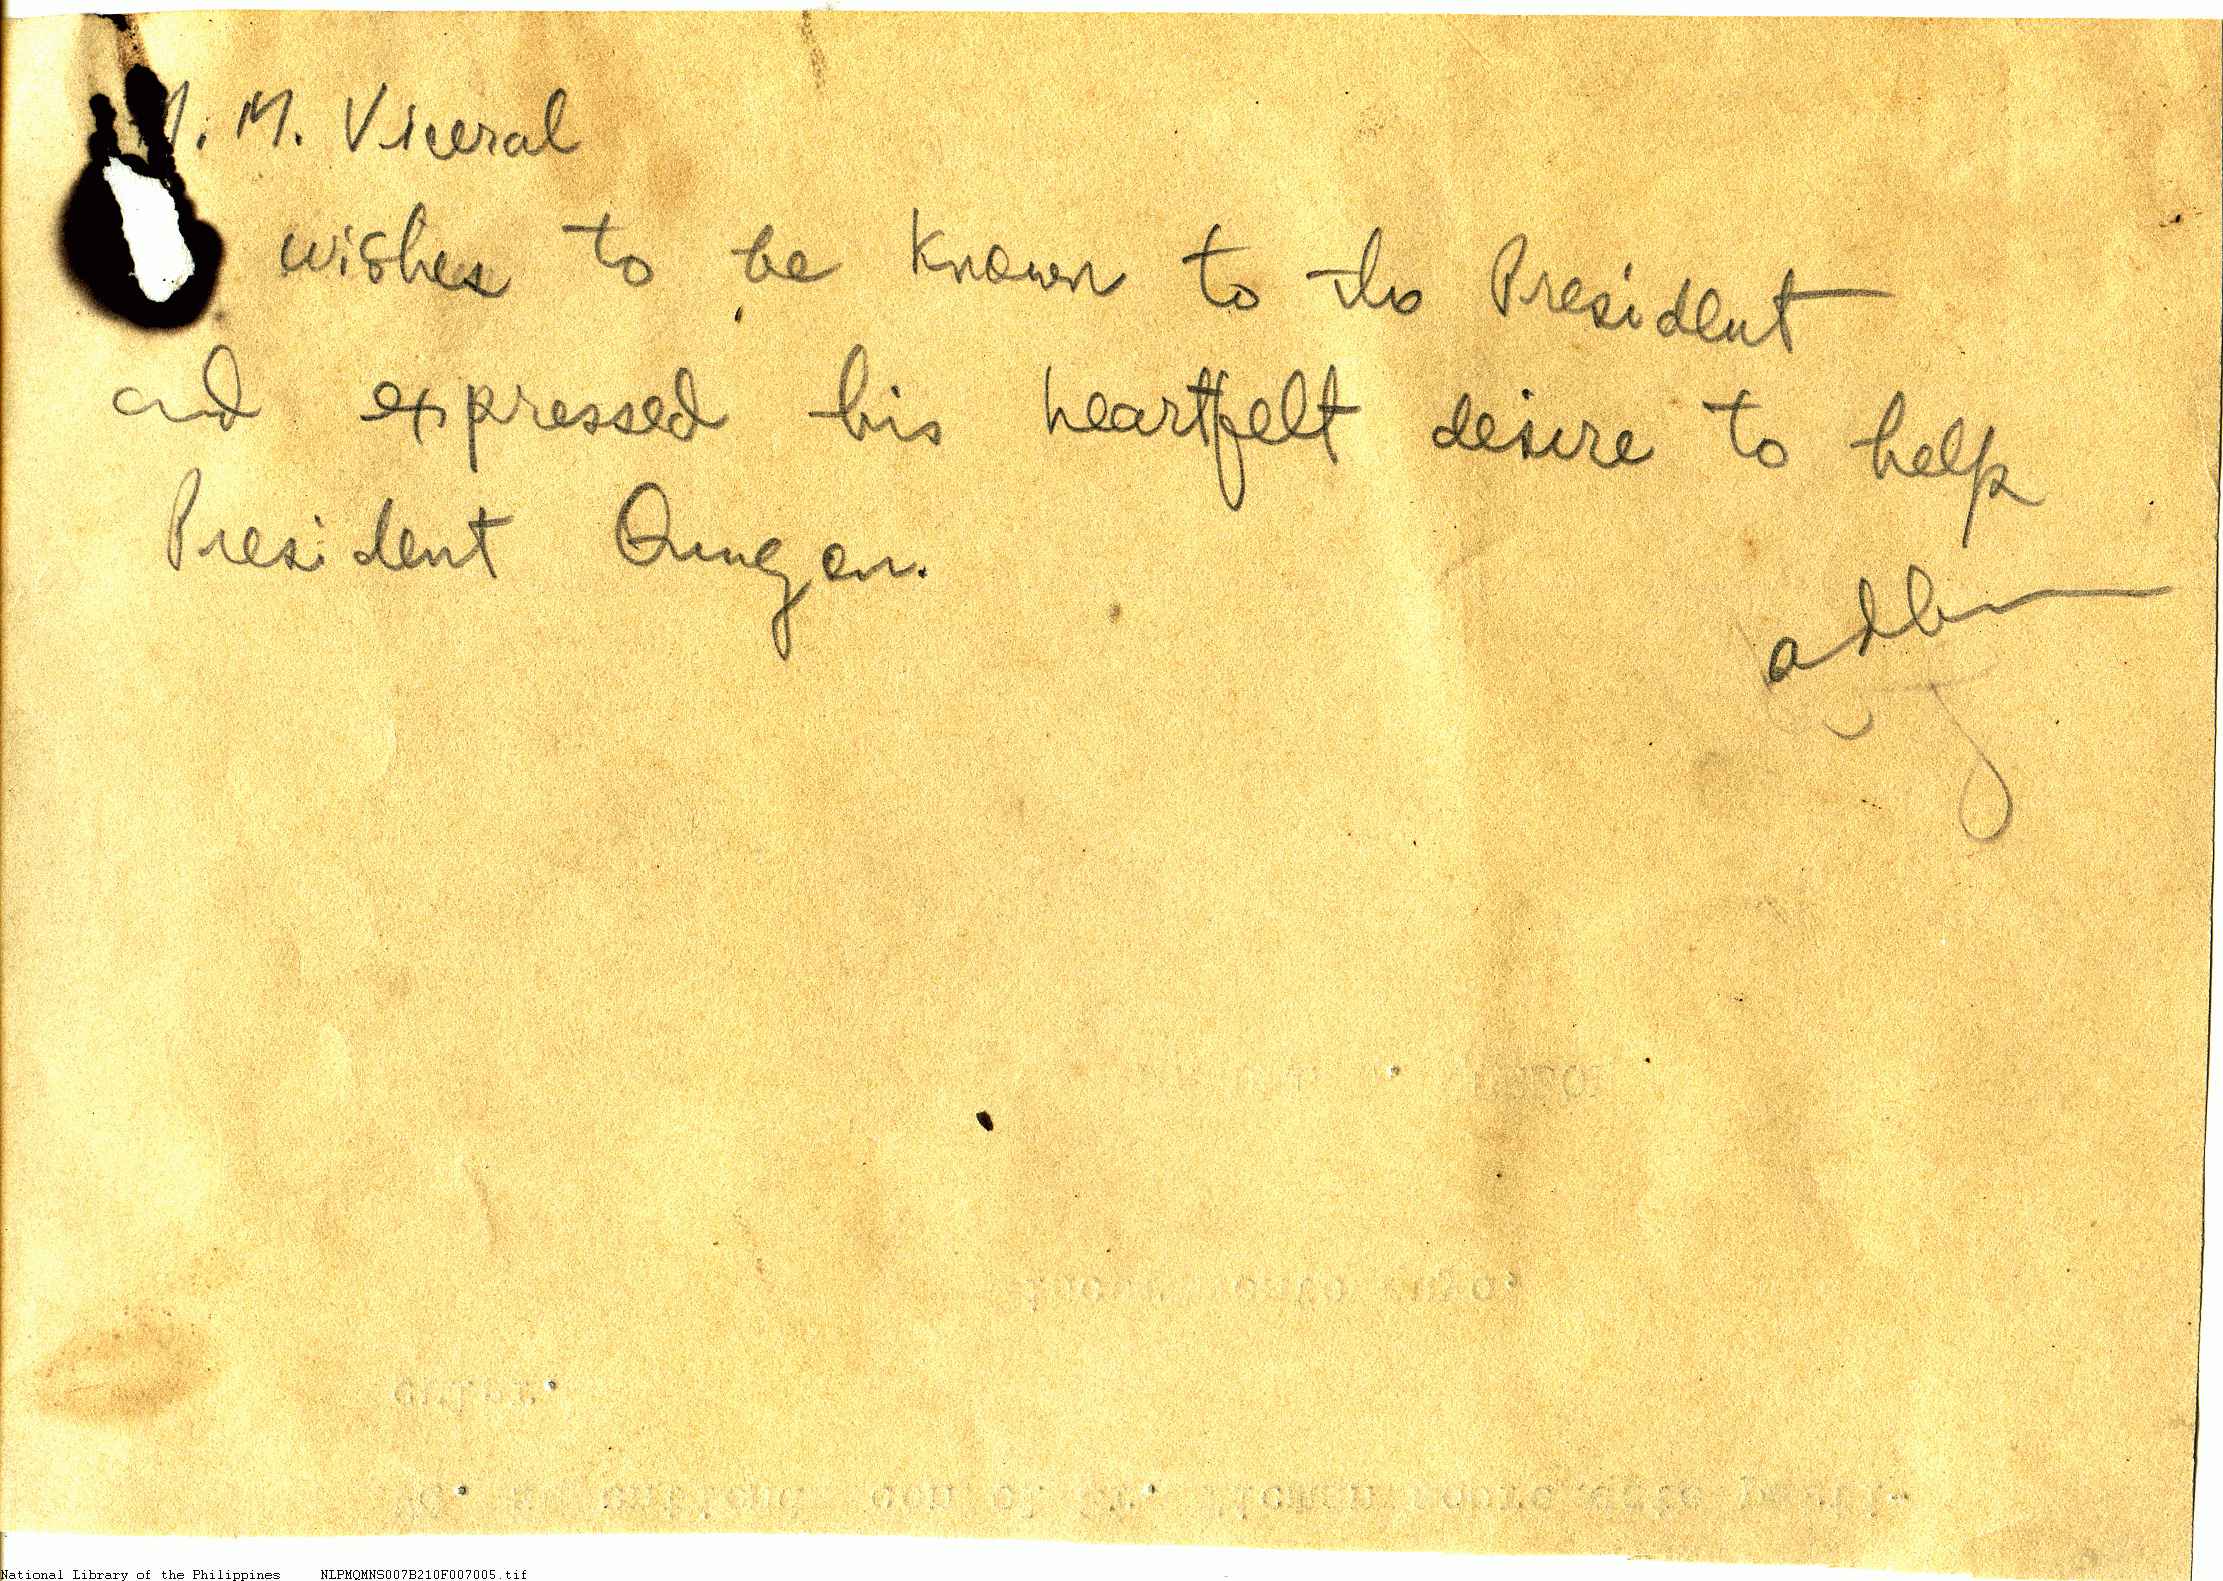 M. Viceral
wishes to be known to the President
and expressed his heartfelt desire to help
President Quezon.
National Library of the Philippines NLPMQMNS007B210F007005.tif